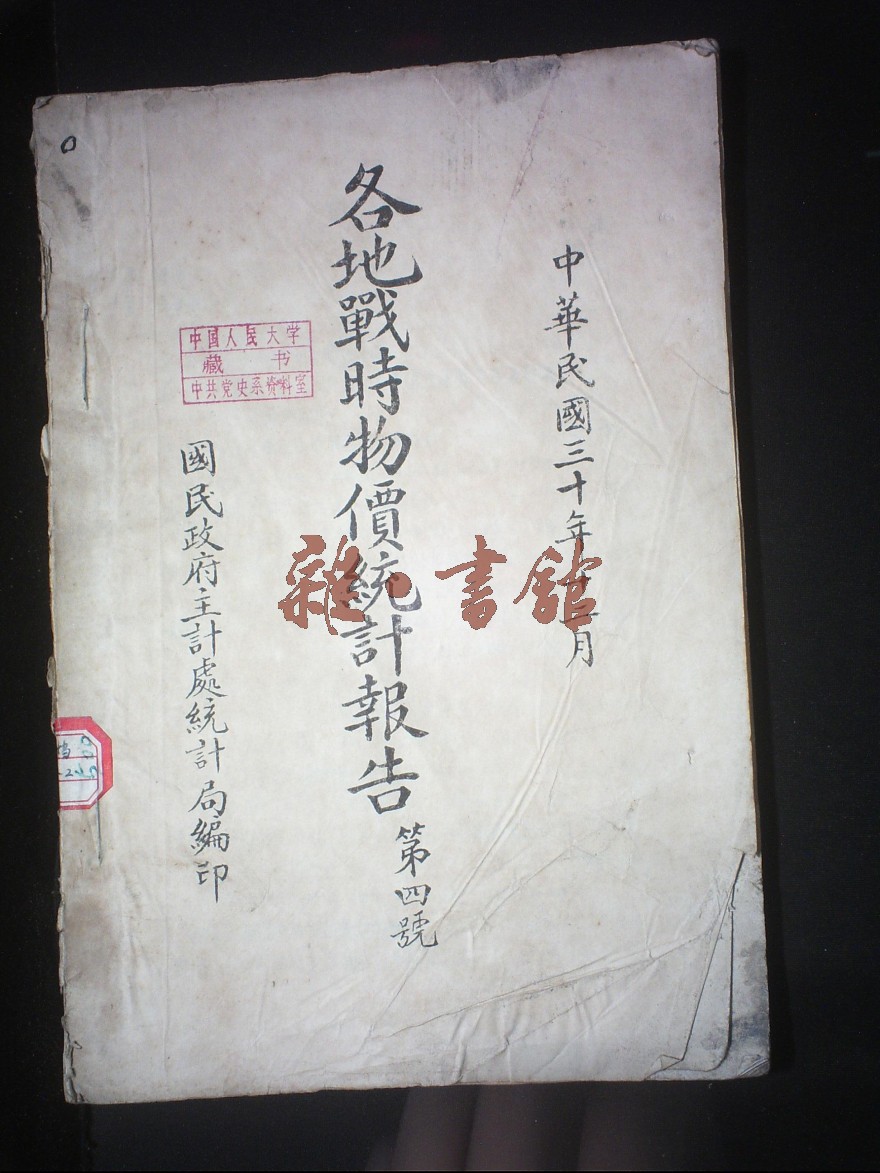 中華民國三十年十二月
各地戰時物價統計報告
第四號
國民政府主計處統計局編印
中国人民大学
藏 书
中共党史系资料室
雜·書館